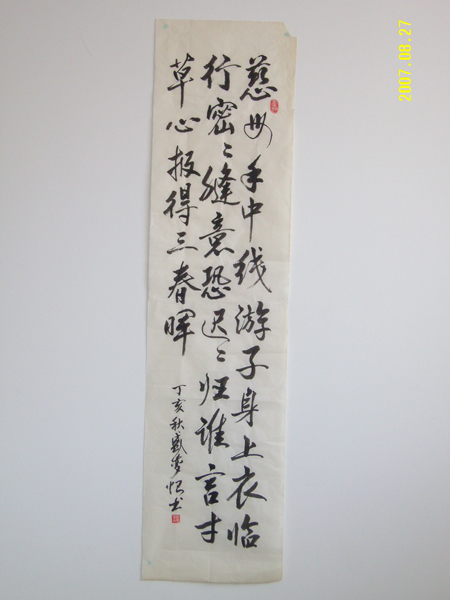 慈母手中线游子身上衣临
行密々缝意恐迟々归谁言寸
草心报得三春晖
丁亥秋 书
2007.08.27